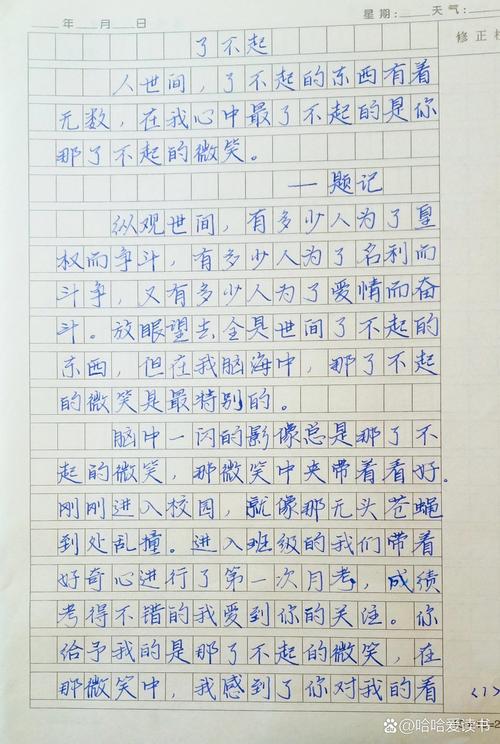 星期: 天气:
年 月 日
修正栏
了不起
人世间，了不起的东西有着
无数，在我心中最了不起的是你
那了不起的微笑。
—题记
纵观世间，有多少人为了皇
权而争斗，有多少人为了名利而
斗争，又有多少人为了爱情而奋
斗。放眼望去全是世间了不起的
东西，但在我脑海中，那了不起
的微笑是最特别的。
脑中一闪的影像总是那了不
起的微笑，那微笑中夹带着看好。
刚刚进入校园，就像那无头苍蝇
到处乱撞。进入班级的我们带着
好奇心进行了第一次月考，成绩
考得不错的我爱到你的关注。你
给予我的是那了不起的微笑，在
那微笑中，我感到了你对我的看
(1)
@哈哈爱读书